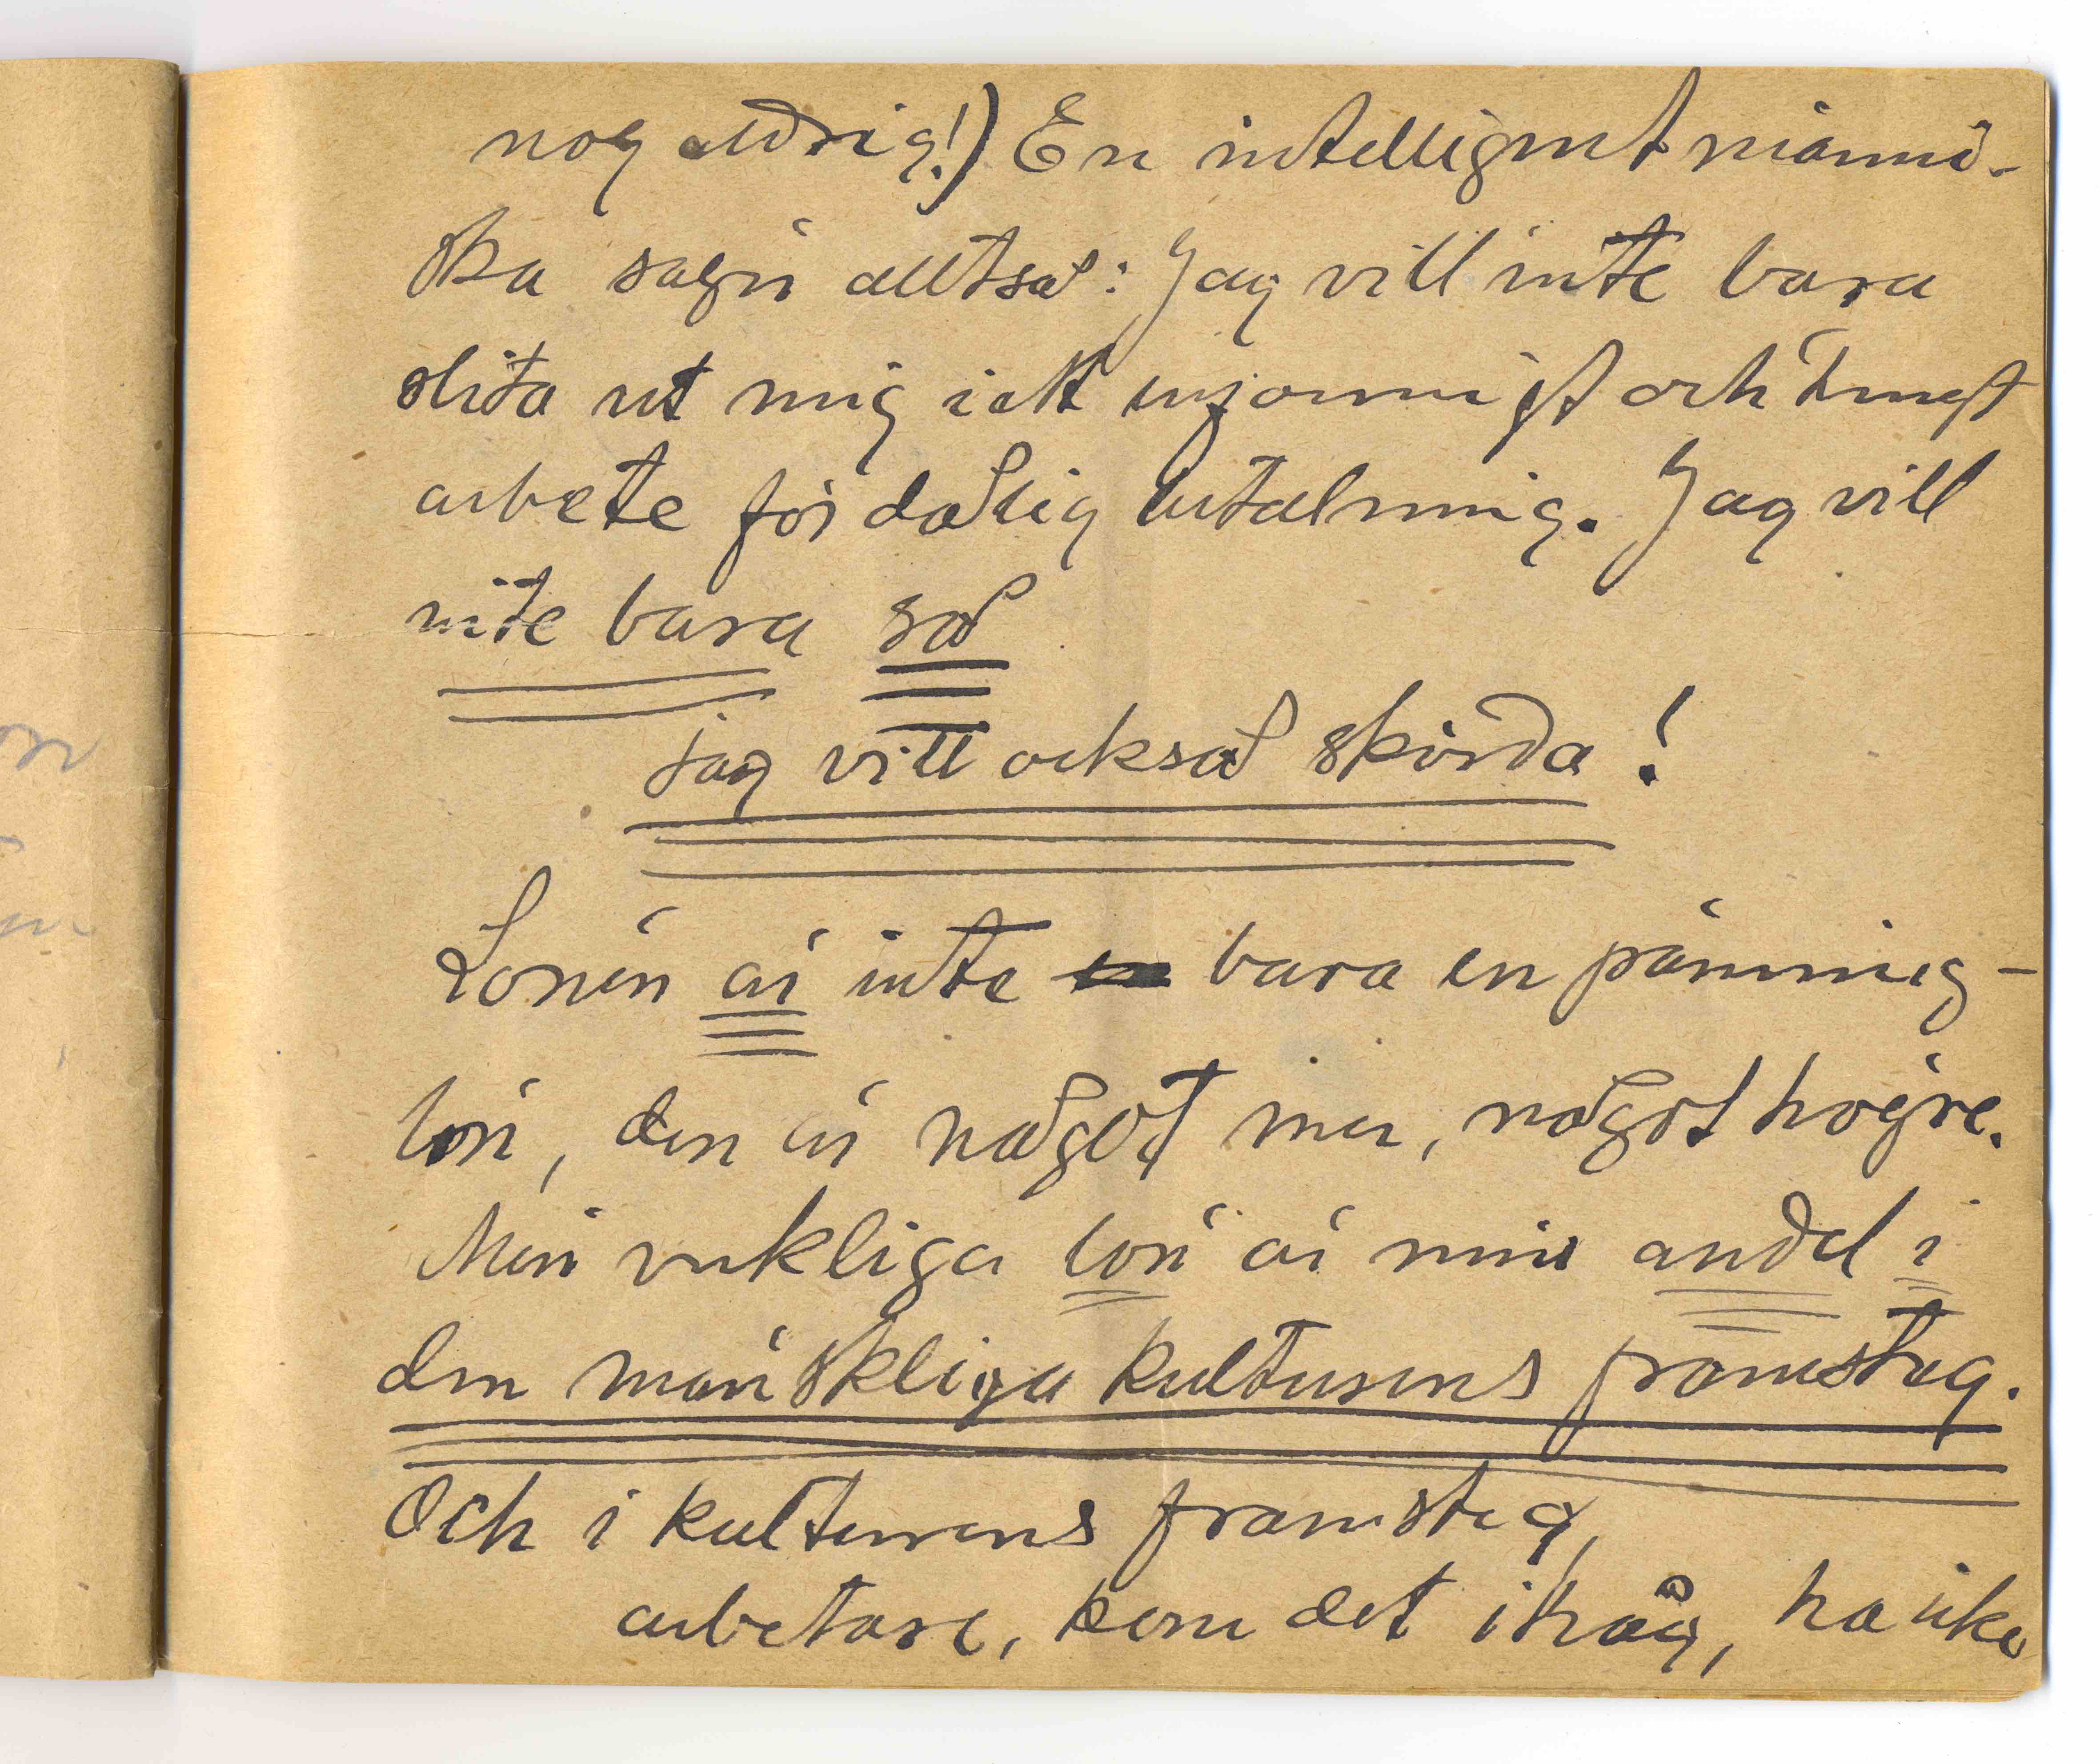 nog aldrig!) En intelligent männi-
ska säger alltså: Jag vill inte bara
slita ut mig i ett enformigt och tungt
arbete för dålig betalning. Jag vill
inte bara så
jag vill också skörda!
Lönen är inte en bara en penning-
lön, den är något mer, något högre.
Min verkliga lön är min andel i
den mänskliga kulturens framsteg.
Och i kulturens framsteg,
arbetare, kom det ihåg, ha icke